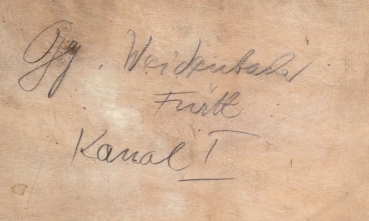 Gg. Weidenbacher
Fürth
Kanal I